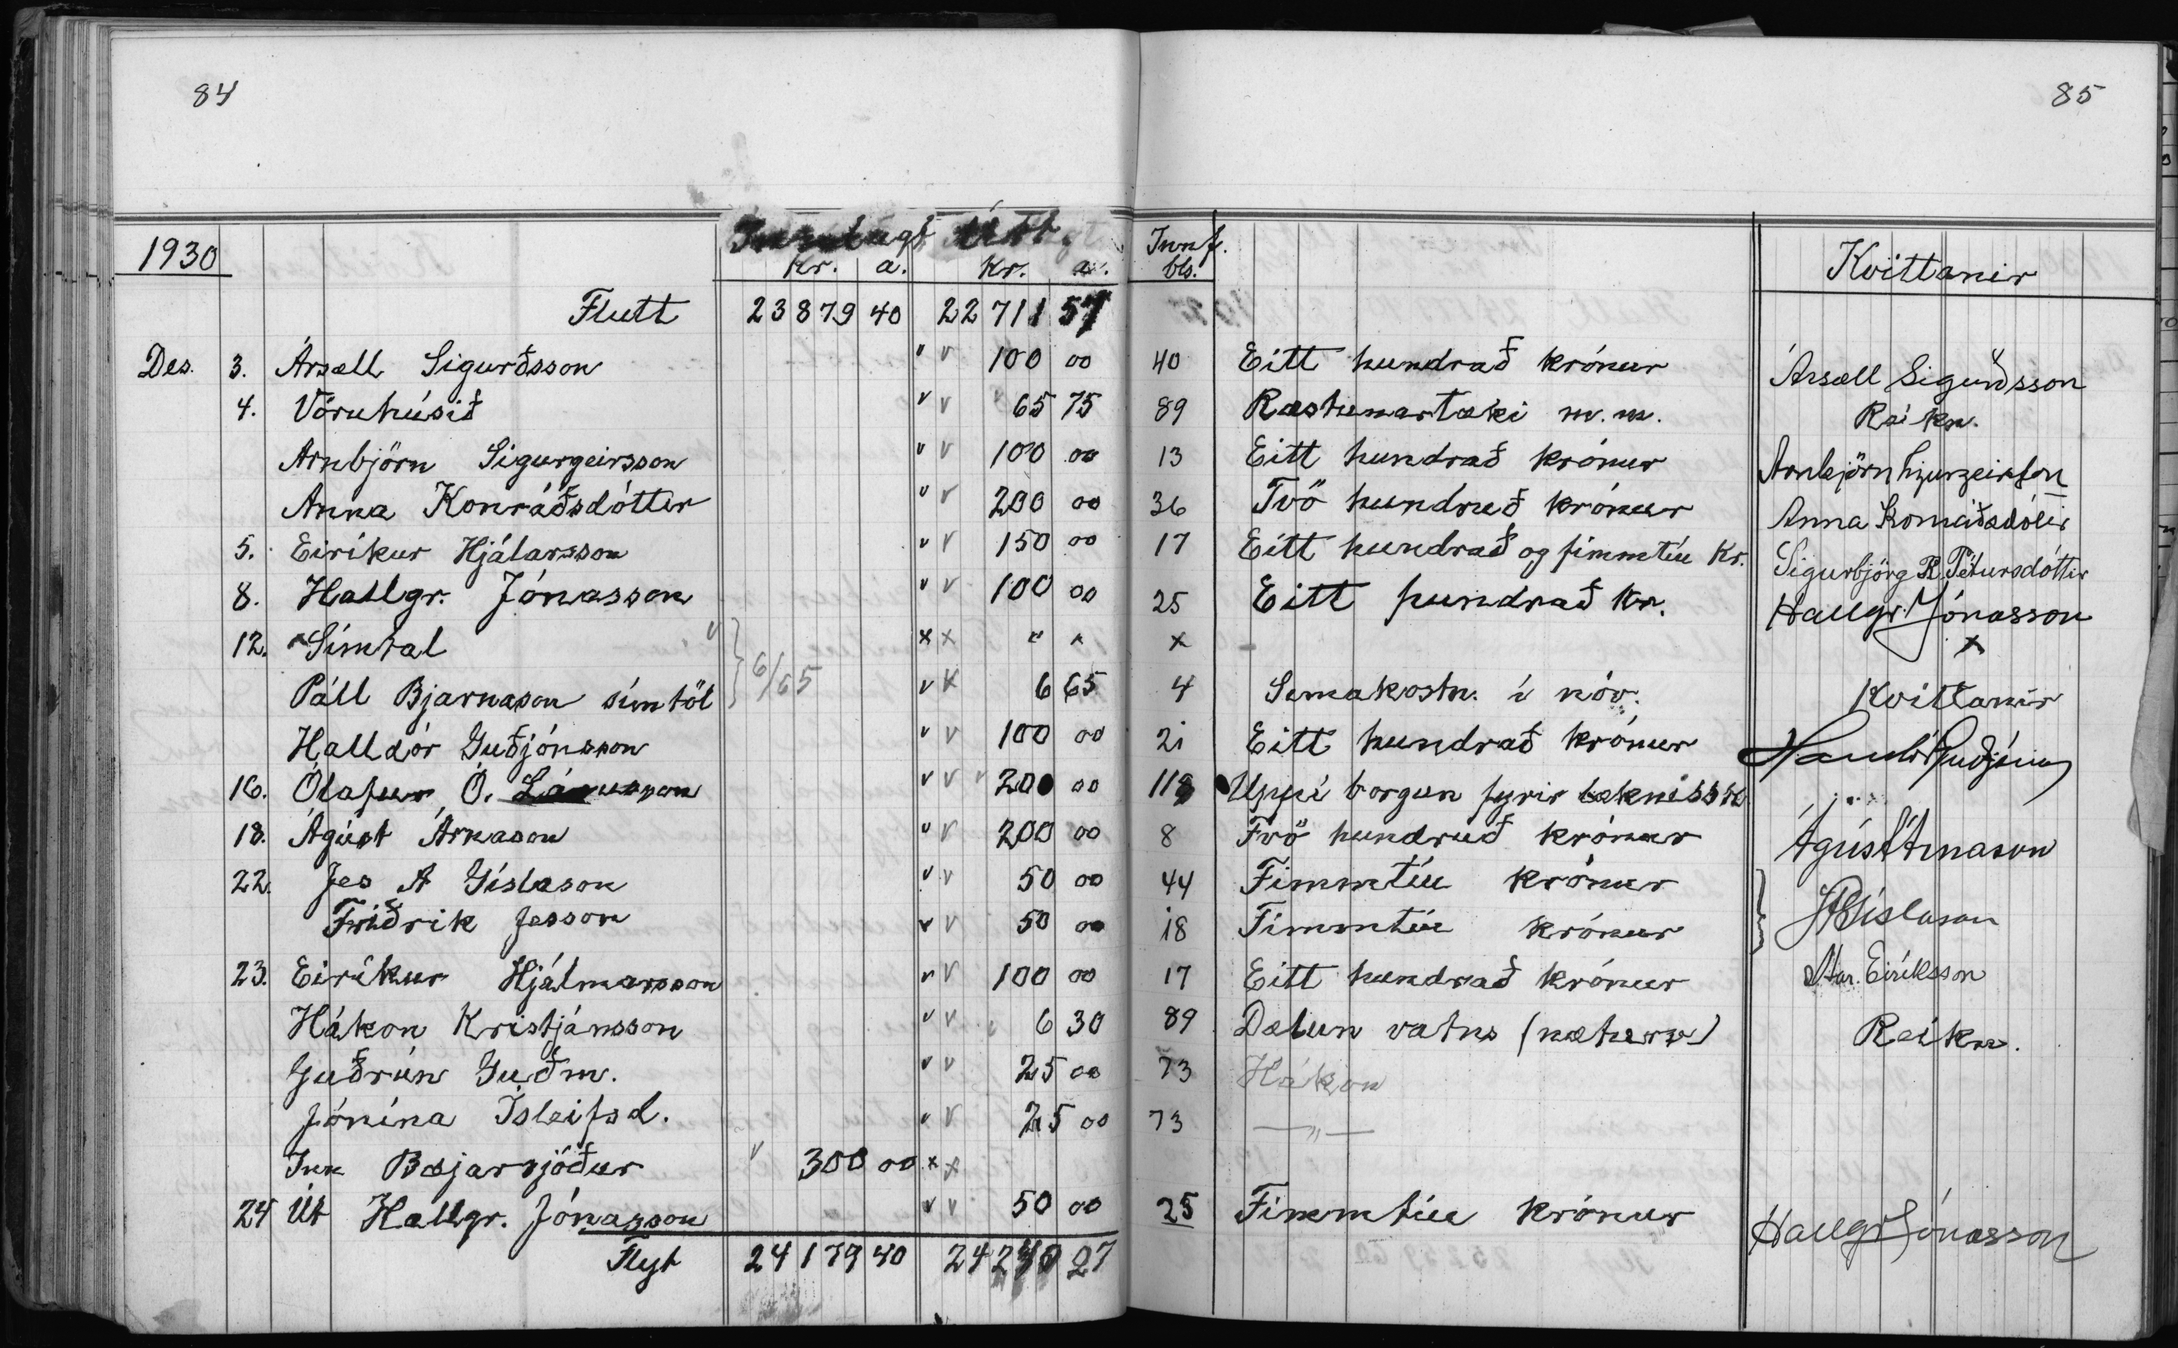 84
85
1930 Innlagt Útt. Innf. bls. Kvittanir
Kr. a. Kr. a.
Flutt 23879 40 22711 57
Des. 3. Ársæll Sigurðsson " v 100 00 40 Eitt hundrað krónur Ársæll Sigurðsson
4. Vöruhúsið " v 65 75 89 Ræstunartæki m. m. Reikn.
Arnbjörn Sigurgeirsson " v 100 00 13 Eitt hundrað krónur Arnbjörn Sigurgeirsson
Anna Konráðsdóttir " v 200 00 36 Tvö hundruð krónur Anna Konráðsdóttir
5. Eiríkur Hjálarsson " v 150 00 17 Eitt hundrað og fimmtíu Kr. Sigurbjörg R. Pétursdóttir
8. Hallgr. Jónasson " v 100 00 25 Eitt hundrað kr. Hallgr. Jónasson
12. Símtal v x x " " x x
Páll Bjarnason símtöl } 6/65 v x 6 65 4 Símakostn. í nóv. Kvittanir
Halldór Guðjónsson " v 100 00 21 Eitt hundrað krónur
16. Ólafur Ó. Lárusson v v v 200 00 118 Uppí borgun fyrir
18. Ágúst Árnason " v 200 00 8 Tvö hundruð krónur Ágúst Árnason
22. Jes A Gíslason " v 50 00 44 Fimmtíu krónur } JAGíslason
Friðrik Jesson v v 50 00 18 Fimmtíu krónur
23. Eiríkur Hjálmarsson v v 100 00 17 Eitt hundrað krónur Eiríksson
Hákon Kristjánsson " v 6 30 89 Dælun vatns (næturv) Reikn.
Guðrún Guðm. " v 25 00 73 Hákon
Jónína Ísleifsd. " v 25 00 73 — " —
Inn Bæjarsjóður v 300 00 x x
24 Út Hallgr. Jónasson v v 50 00 25 Fimmtíu krónur Hallgr Jónasson
Flyt 24179 40 24240 27